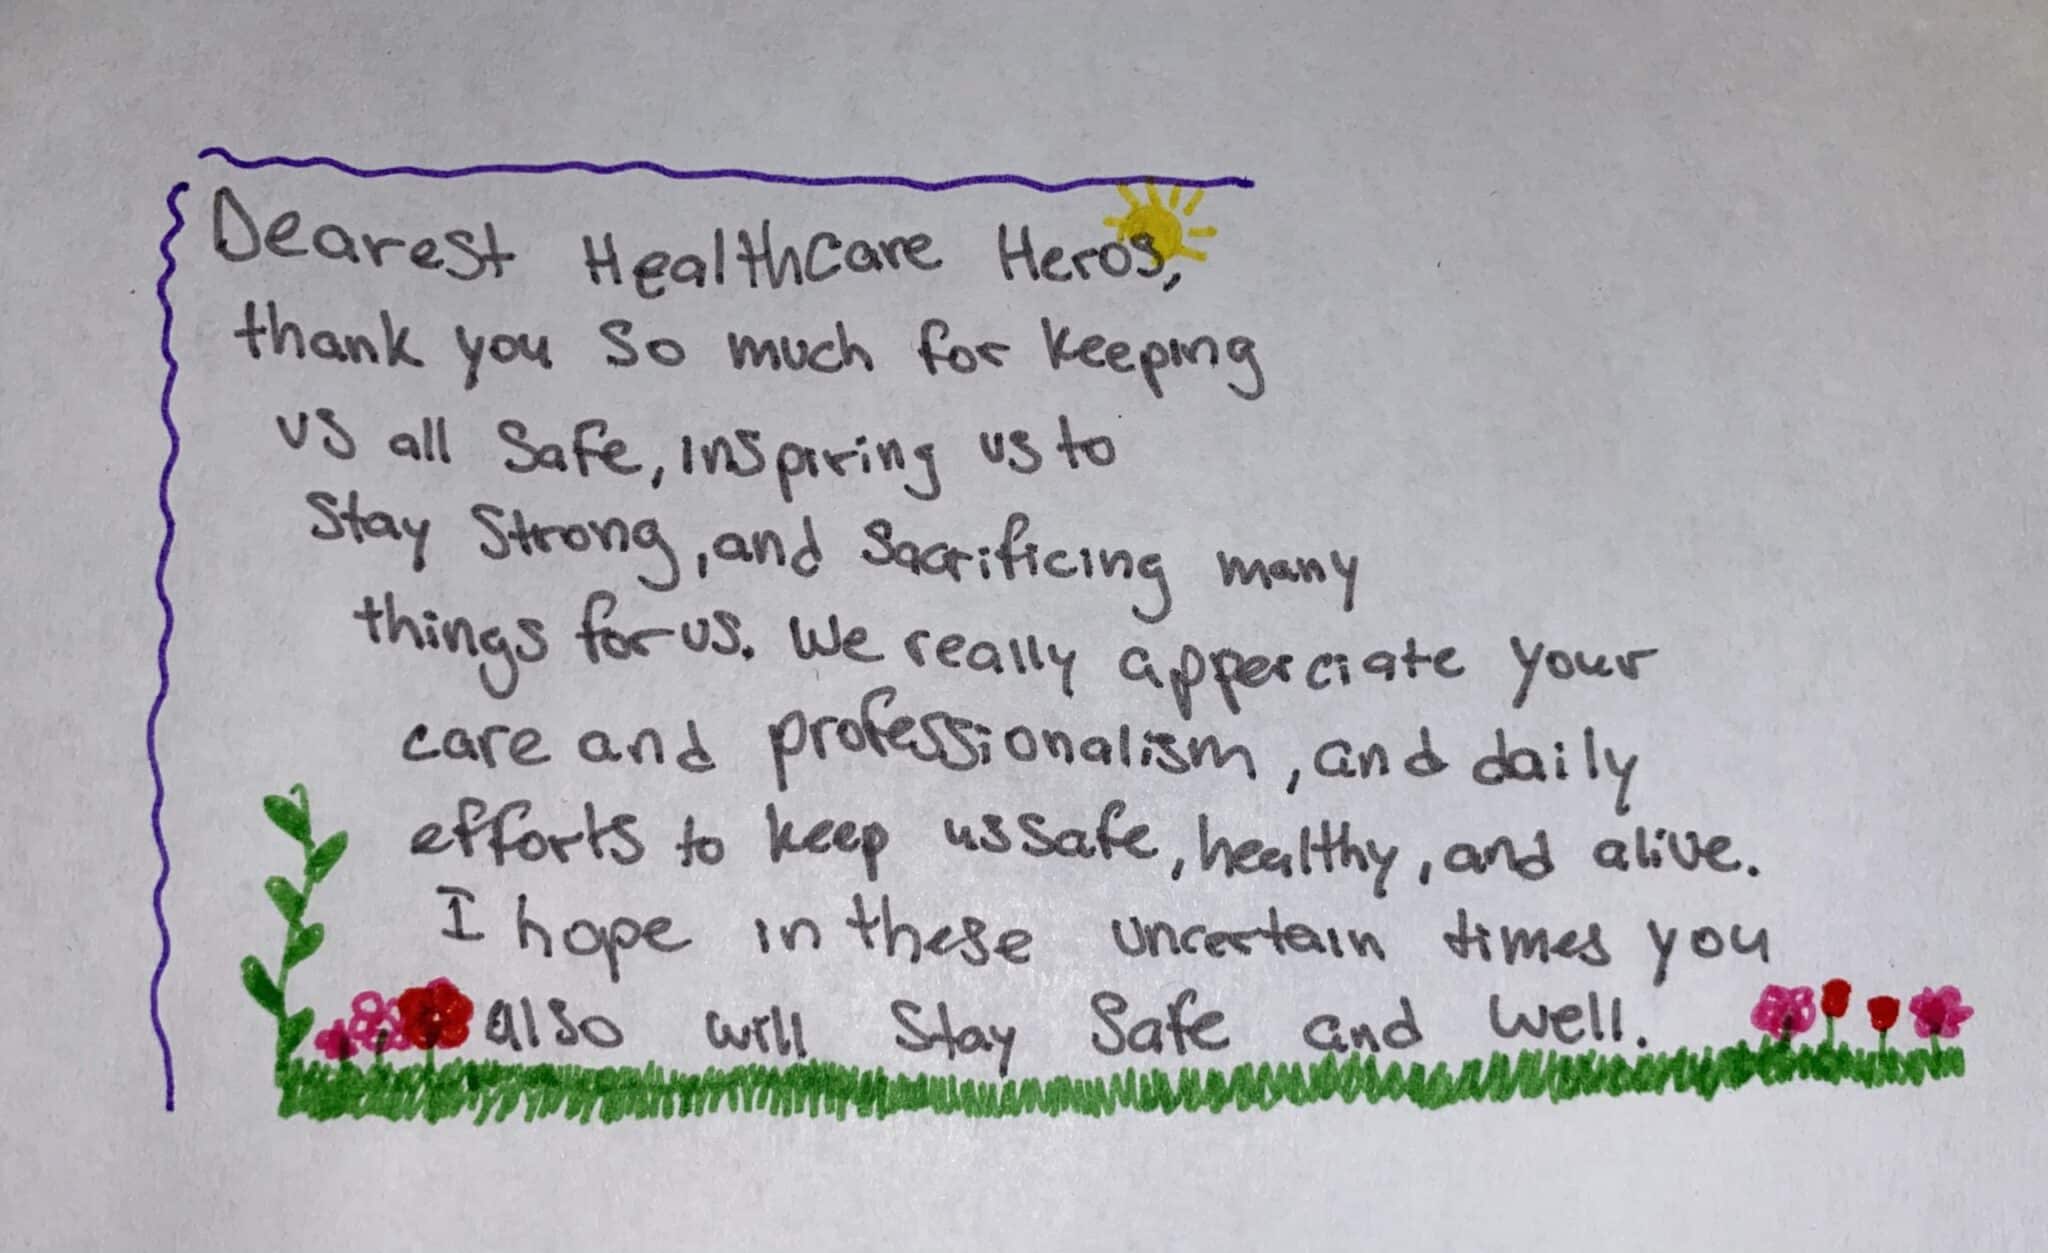 Dearest Healthcare Heros,
thank you so much for keeping
us all safe, inspiring us to
stay strong, and sacrificing many
things for us. We really apperciate your
care and professionalism, and daily
efforts to keep us safe, healthy, and alive.
I hope in these uncertain times you
also will stay safe and well.